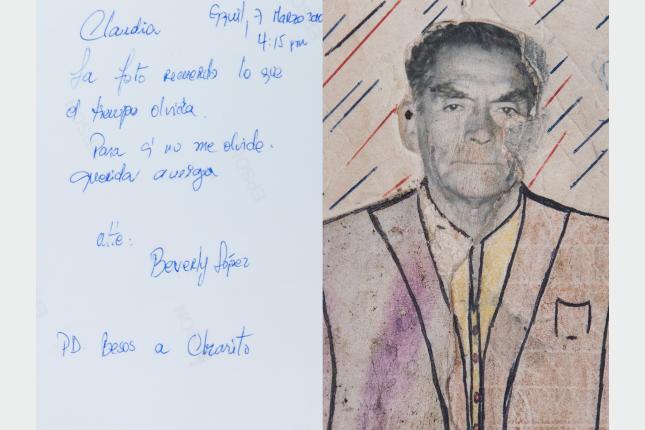 Claudia
Gquil, 7 Marzo 2010
4:15 pm
La foto recuerda lo que
el tiempo olvida.
Para q' no me olvide.
querida amiga
atte:
Beverly López
PD. Besos a Charito